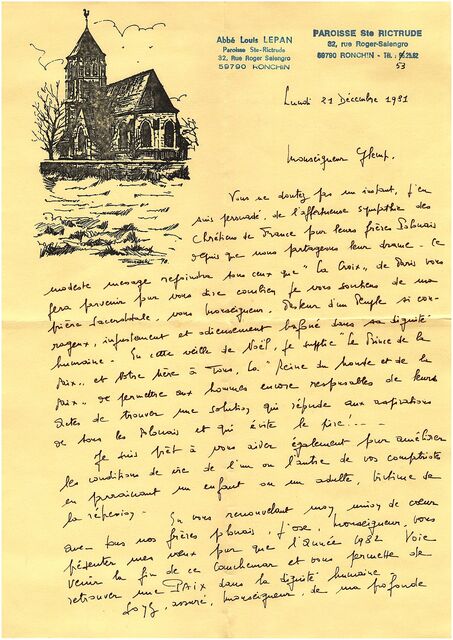 Abbé Louis LEPAN
Paroisse Ste-Rictrude
32, rue Roger Salengro
59790 RONCHIN
PAROISSE Ste RICTRUDE
32, rue Roger-Salengro
59790 RONCHIN - TÉL : 53
Lundi 21 Décembre 1981
Monseigneur Glemp.
Vous ne doutez pas un instant, j'en
suis persuadé, de l'affectueuse sympathie des
Chrétiens de France pour leurs frères Polonais
depuis que nous partageons leur drame. Ce
modeste message rejoindra tous ceux que "La Croix" de Paris vous
fera parvenir pour vous dire combien je vous soutiens de ma
prière Sacerdotale, vous Monseigneur, Pasteur d'un Peuple si cou-
rageux, injustement et odieusement bafoué dans sa dignité
humaine. En cette veille de Noël, je supplie "le Prince de la
Paix", et Notre Mère à Tous, la "Reine du monde et de la
Paix" de permettre aux hommes encore responsables de leurs
actes de trouver une solution qui réponde aux aspirations
de tous les Polonais et qui évite le pire!...
Je suis prêt à vous aider également pour améliorer
les conditions de vie de l'un ou l'autre de vos compatriotes
en parrainant un enfant ou un adulte, victime de
la répression. En vous renouvelant mon union de cœur
avec tous nos frères polonais, j'ose, Monseigneur, vous
présenter mes vœux pour que l'année 1982 voie
venir la fin de ce cauchemar et vous permette de
retrouver une PAIX dans la dignité humaine.
Soyez assuré, Monseigneur, de ma profonde